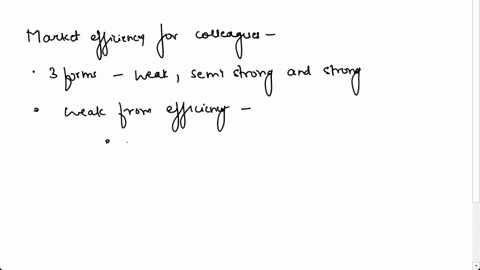 Market efficiency for colleagues -
· 3 forms - weak, semi strong and strong
· weak from efficiency -
·